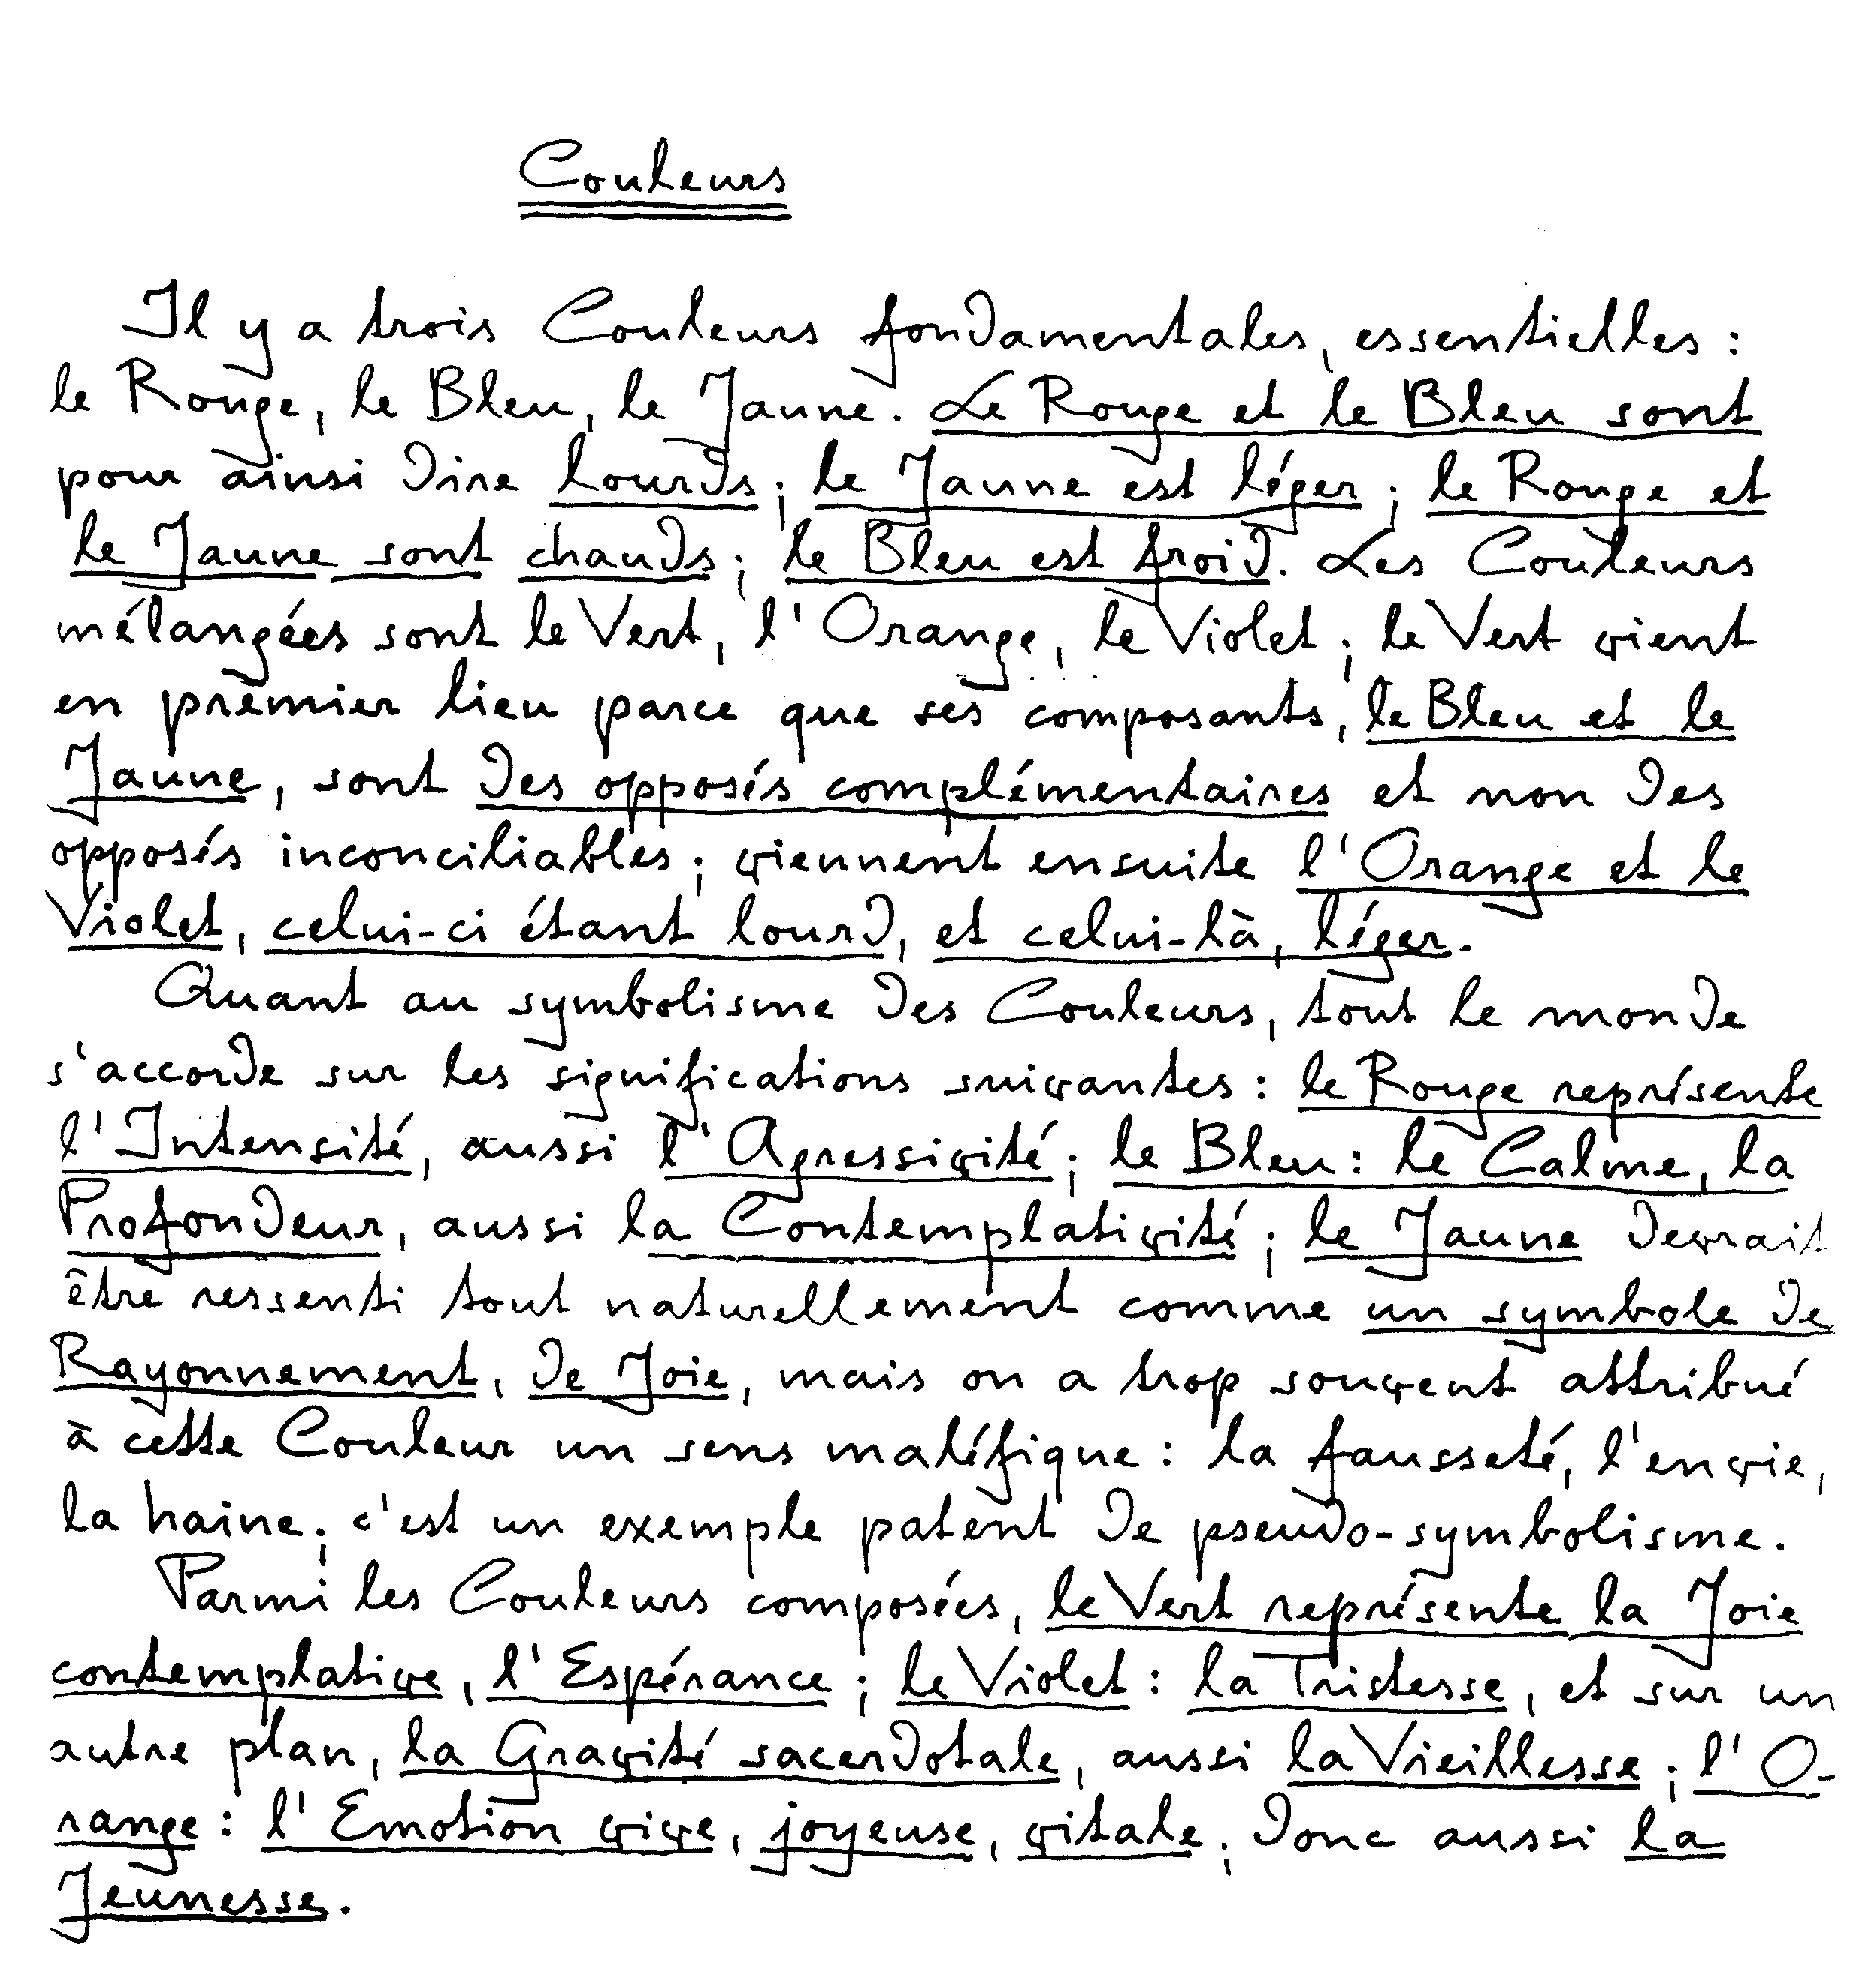 Couleurs
Il y a trois Couleurs fondamentales, essentielles :
le Rouge, le Bleu, le Jaune. Le Rouge et le Bleu sont
pour ainsi dire lourds ; le Jaune est léger ; le Rouge et
le Jaune sont chauds ; le Bleu est froid. Les Couleurs
mélangées sont le Vert, l'Orange, le Violet ; le Vert vient
en premier lieu parce que ses composants, le Bleu et le
Jaune, sont des opposés complémentaires et non des
opposés inconciliables ; viennent ensuite l'Orange et le
Violet, celui-ci étant lourd, et celui-là, léger.
Quant au symbolisme des Couleurs, tout le monde
s'accorde sur les significations suivantes : le Rouge représente
l'Intensité, aussi l'Agressivité ; le Bleu : le Calme, la
Profondeur, aussi la Contemplativité ; le Jaune devrait
être ressenti tout naturellement comme un symbole de
Rayonnement, de Joie, mais on a trop souvent attribué
à cette Couleur un sens maléfique : la fausseté, l'envie,
la haine ; c'est un exemple patent de pseudo-symbolisme.
Parmi les Couleurs composées, le Vert représente la Joie
contemplative, l'Espérance ; le Violet : la Tristesse, et sur un
autre plan, la Gravité sacerdotale, aussi la Vieillesse ; l'O-
range : l'Emotion vive, joyeuse, vitale ; donc aussi la
Jeunesse.